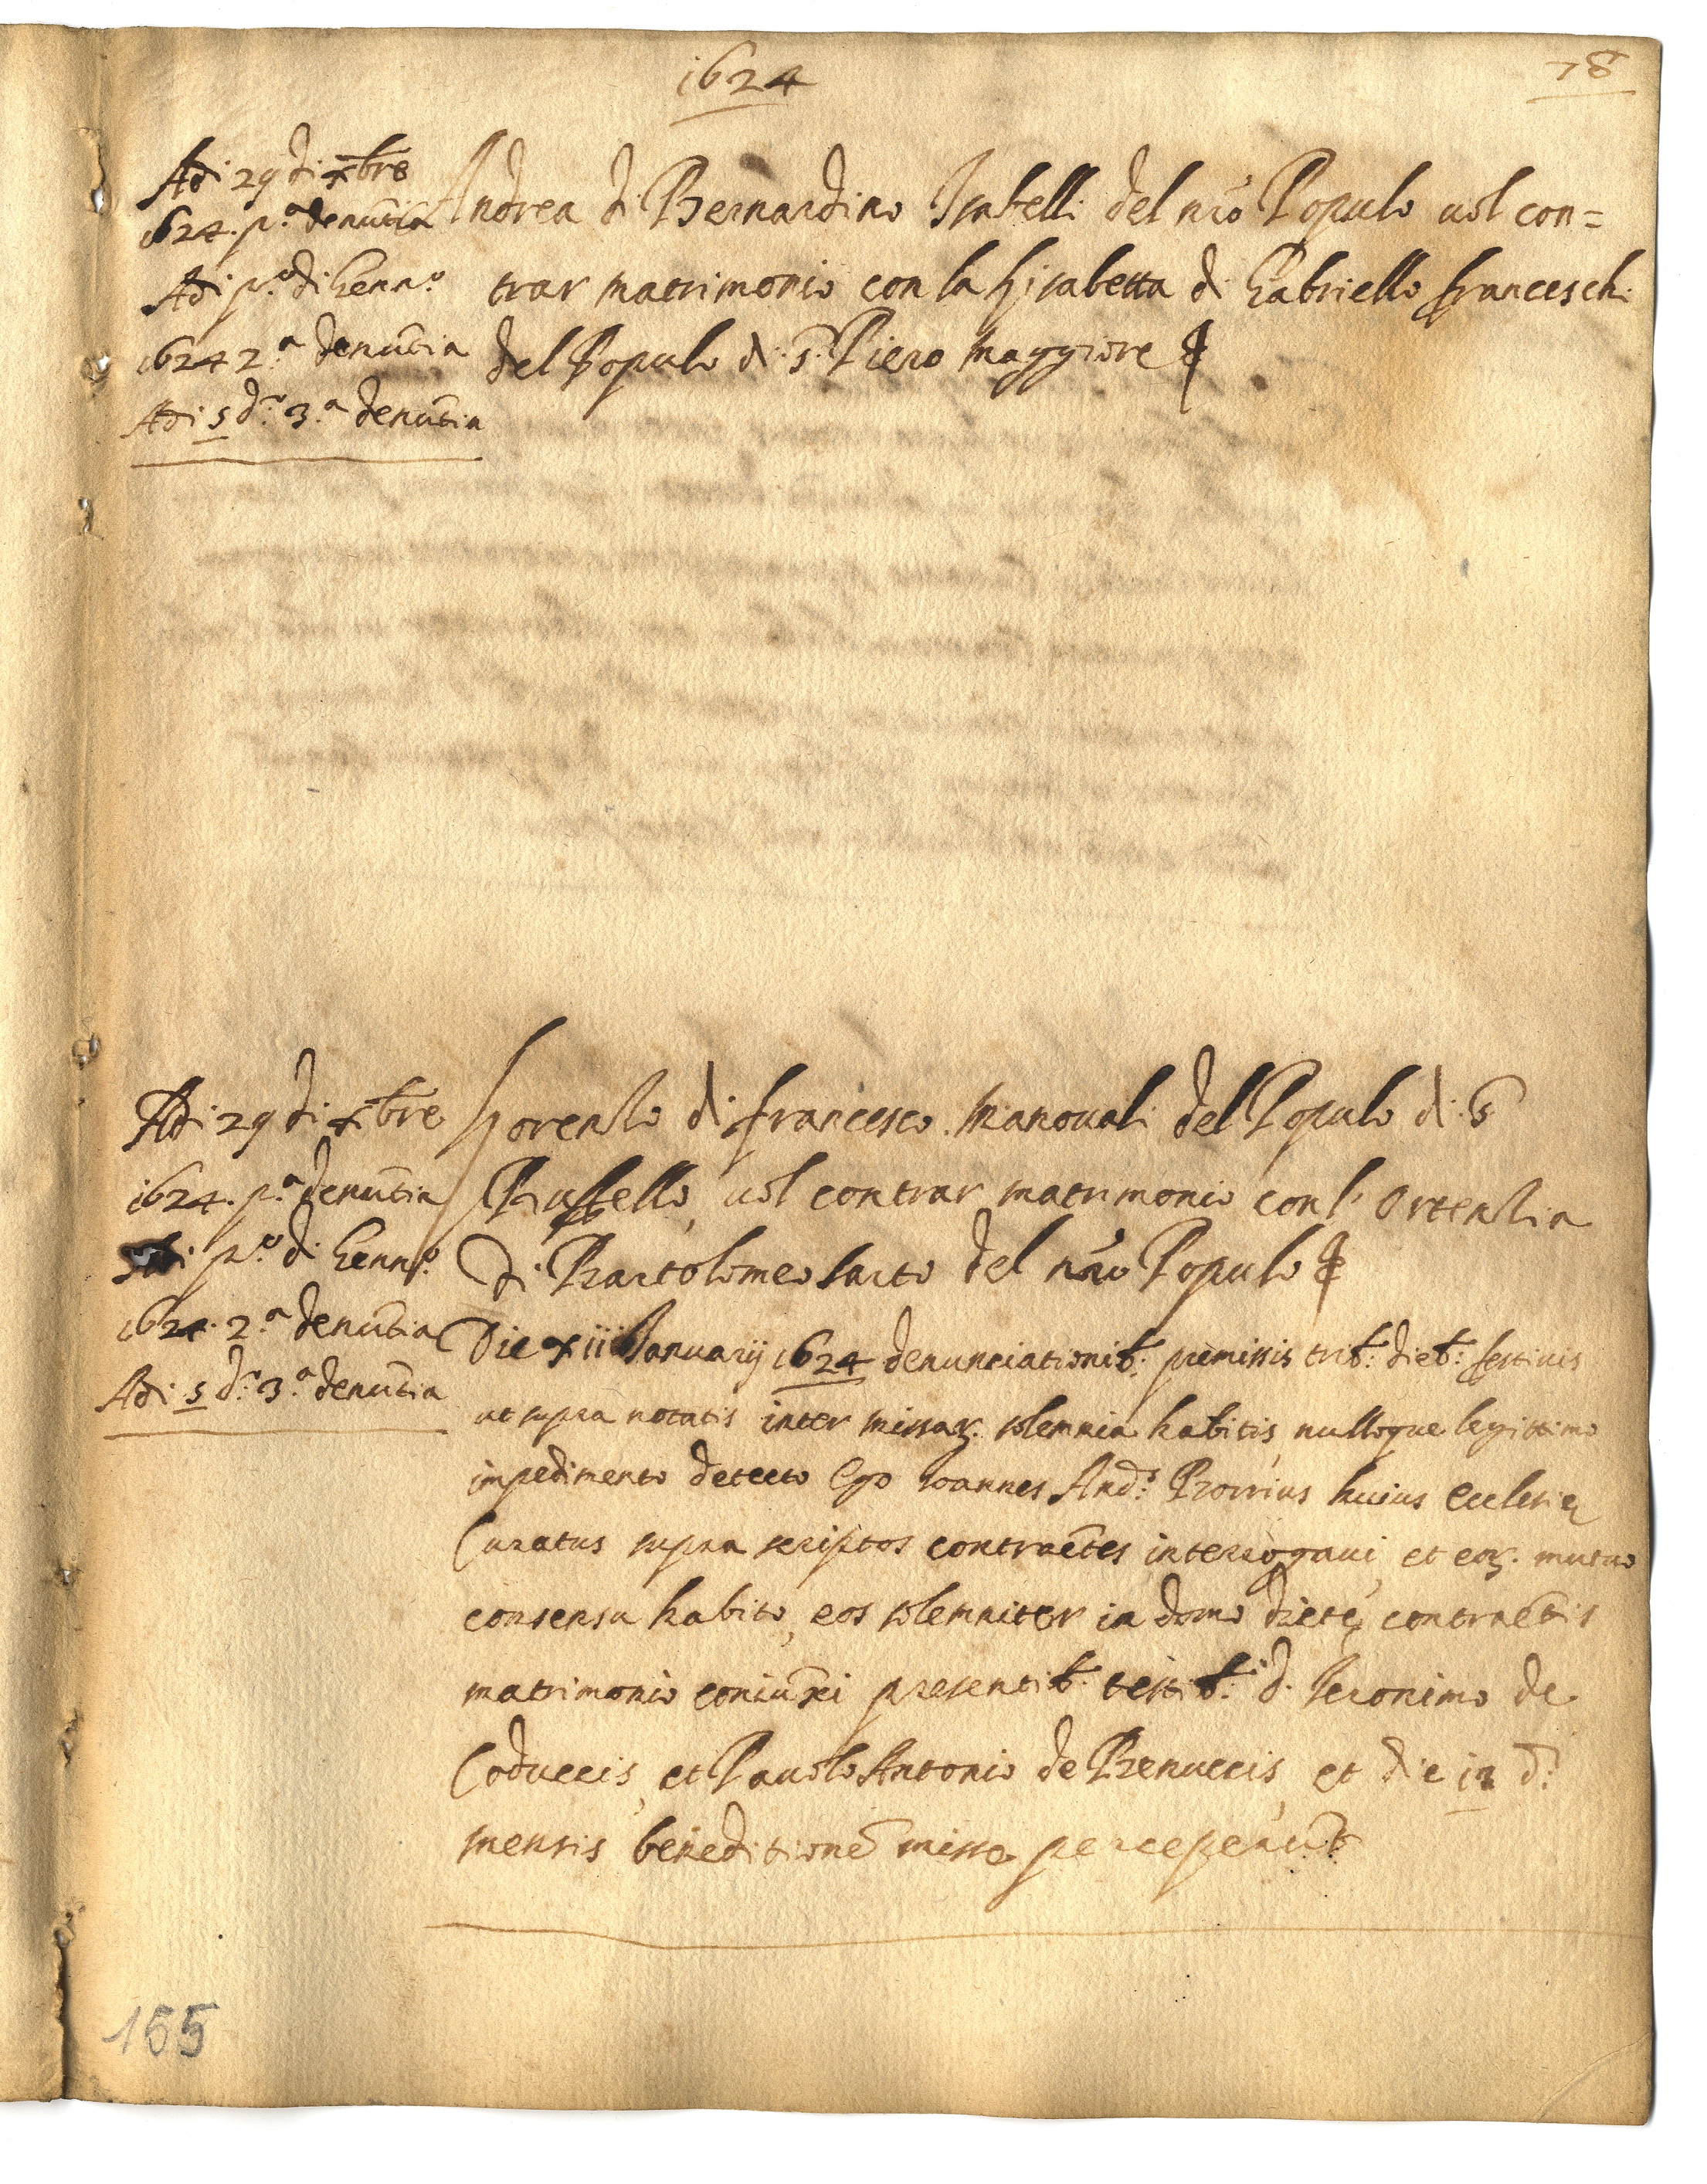 1624
78
Adi 29 di xbre
1624. p.ª denũtia
Adi p.º di Genn.º
1624 2.ª denũtia
Adi 5 d.º 3.ª denũtia
Andrea di Bernardino Isabelli del nr̃o Popolo uol con=
trar matrimonio con la Lisabetta di Gabriello franceschi
del Popolo di S. Piero Maggiore
Adi 29 di xbre
1624. p.ª denũtia
Adi p.º di Genn.º
1624. 2.ª denũtia
Adi 5 d.º 3.ª denũtia
Lorenzo di francesco Manouali del Popolo di S.
Ruffello, uol contrar matrimonio con l' Ortenzia
di Bartolomeo Sarto del nr̃o Popolo
Die xiii Januarij 1624 denunciationib: premissis trib: dieb: festiuis
ut supra notatis inter missaꝝ solemnia habitis, nulloque legittimo
impedimento detecto Ego Ioannes And.s huius Ecclesię
Curatus supra scriptos contraẽtes interrogaui, et eoꝝ mutuo
consensu habito, eos solemniter in domo dictę contraẽtis
matrimonio coniũxi presentib: testib: d. Ieronimo de
Coduccis, et Pauolo Antonio de Benuccis, et die d.
mensis beneditionẽ missę perceperũt
155